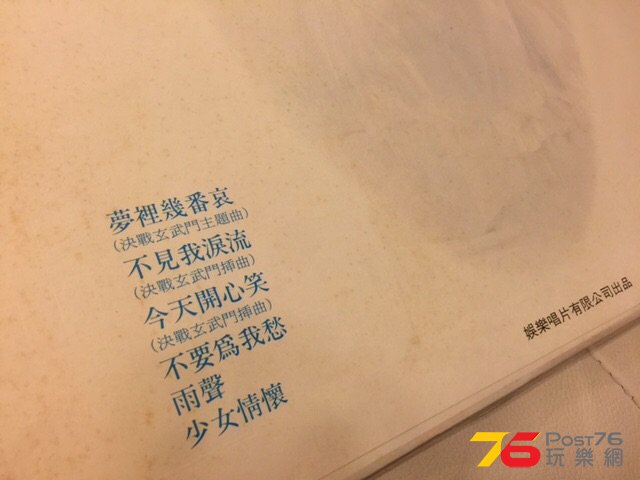 夢裡幾番哀
(決戰玄武門主題曲)
不見我淚流
(決戰玄武門揷曲)
今天開心笑
(決戰玄武門揷曲)
不要爲我愁
雨聲
少女情懷
娛樂唱片有限公司出品
76 Post76
玩樂網